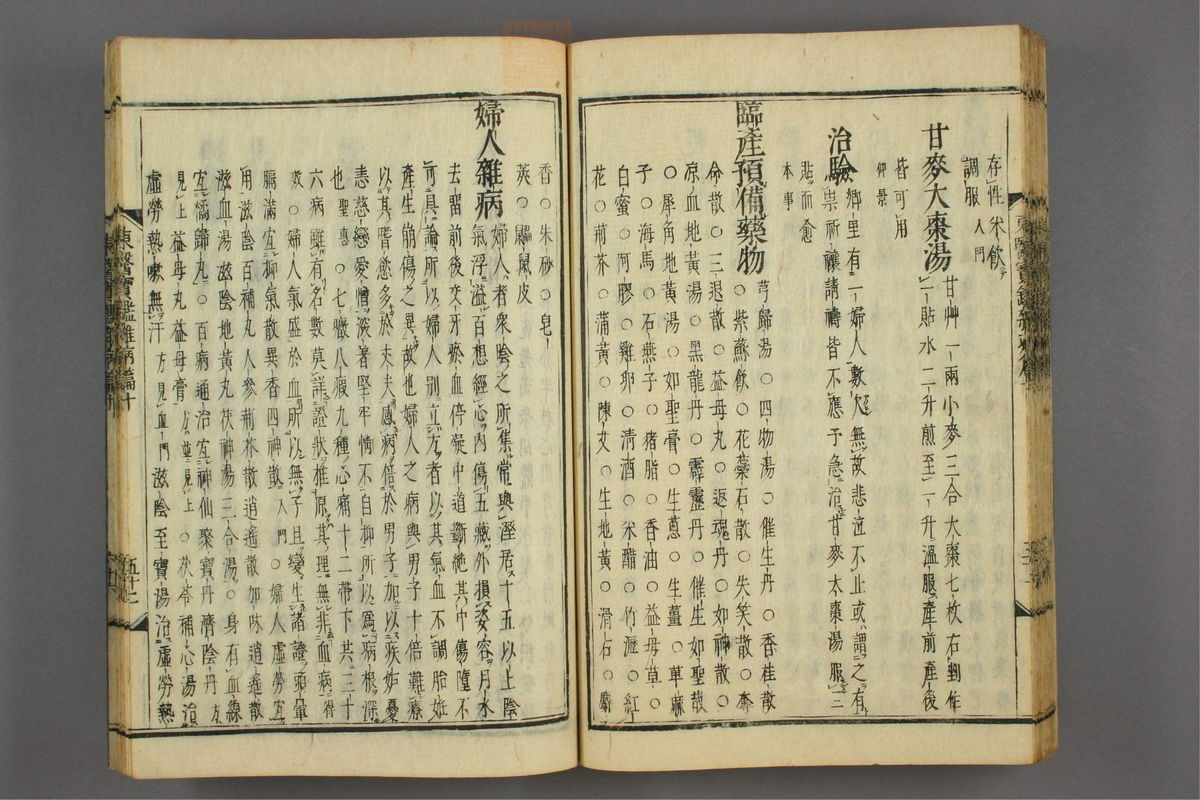 存性米飲
調服入門
甘麥大棗湯甘艸一兩小麥三合大棗七枚右剉作
一貼水二升煎至一升溫服產前產後
皆可用
仲景
治驗鄉里有一婦人數欠無故悲泣不止或謂之有
祟祈禳請禱皆不應予急治甘麥大棗湯服三
貼而愈
本事
臨產預備藥物芎歸湯○四物湯○催生丹○香桂散
○紫蘇飲○花蘂石散○失笑散○奪
命散○三退散○益母丸○返魂丹○如神散○
凉血地黃湯○黑龍丹○霹靂丹○催生如聖散
○犀角地黃湯○如聖膏○生葱○生薑○草麻
子○海馬○石燕子○猪脂○香油○益母草○
白蜜○阿膠○雞卵○淸酒○米醋○竹瀝○紅
花○荊芥○蒲黃○陳艾○生地黃○滑石○麝
香○朱砂○皂
莢○鼴鼠皮
婦人雜病婦人者衆陰之所集常與濕居十五以上陰
氣浮溢百想經心內傷五藏外損姿容月水
去留前後交牙瘀血停凝中道斷絕其中傷墮不
可具論所以婦人別立方者以其氣血不調胎姙
產生崩傷之異故也婦人之病與男子十倍難療
以其嗜慾多於丈夫感病倍於男子加以疾妬憂
恚慈戀愛憎深著堅牢情不自抑所以爲病根深
也聖惠○七癥八瘕九種心痛十二帶下共三十
六病雖有名數莫詳證狀推原其理無非血病得
效○婦人氣盛於血所以無子且變生諸證頭暈
膈滿宜抑氣散異香四神散入門○婦人虛勞宜
用滋陰百補丸人參荊芥散逍遙散加味逍遙散
滋血湯滋陰地黃丸茯神湯三合湯○身有血線
宜橘歸丸○百病通治宜神仙聚寶丹濟陰丹方
見上益母丸益母膏方並見上○茯苓補心湯治
虛勞熱嗽無汗方見血門滋陰至寶湯治虛勞熱
東醫寶鑑雜病篇十
五十七